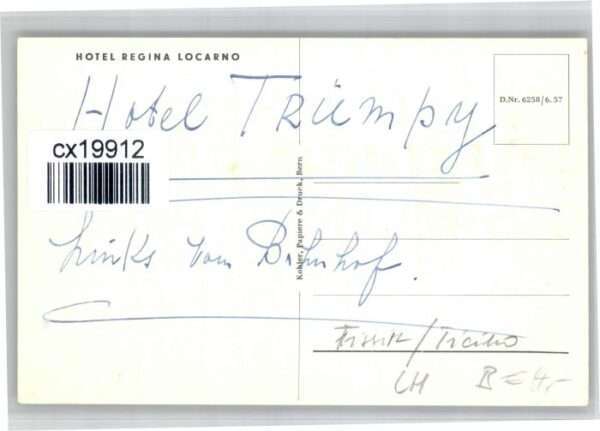 HOTEL REGINA LOCARNO
Hotel Trümpy
D.Nr. 6258/6.57
cx19912
Kohler, Papiere & Druck, Bern
Links vom Bahnhof.
/Ticino
CH B € 4,-